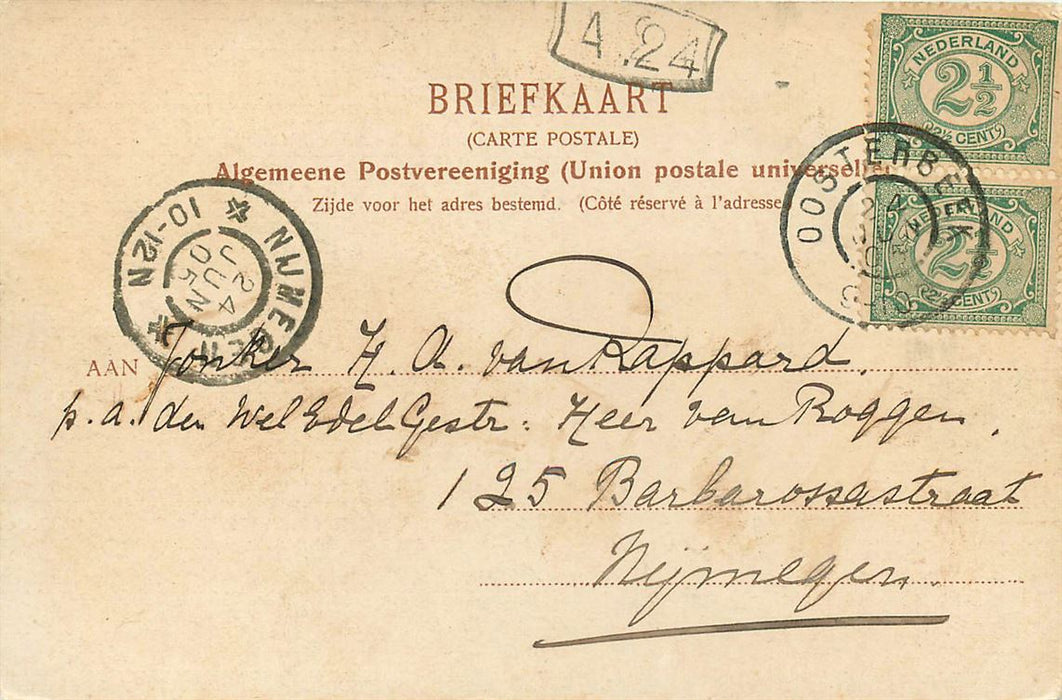 A.24
BRIEFKAART
(CARTE POSTALE)
Algemeene Postvereeniging (Union postale universelle)
Zijde voor het adres bestemd. (Côté réservé à l'adresse
NEDERLAND
2½
(2½ CENT)
NEDERLAND
2½
(2½ CENT)
OOSTERBEEK
24
NIJMEGEN
10-12N
24
JUN
05
AAN Jonker H. A. van Rappard.
p.a. den WelEdelGestr: Heer van Roggen,
125 Barbarossastraat
Nijmegen.